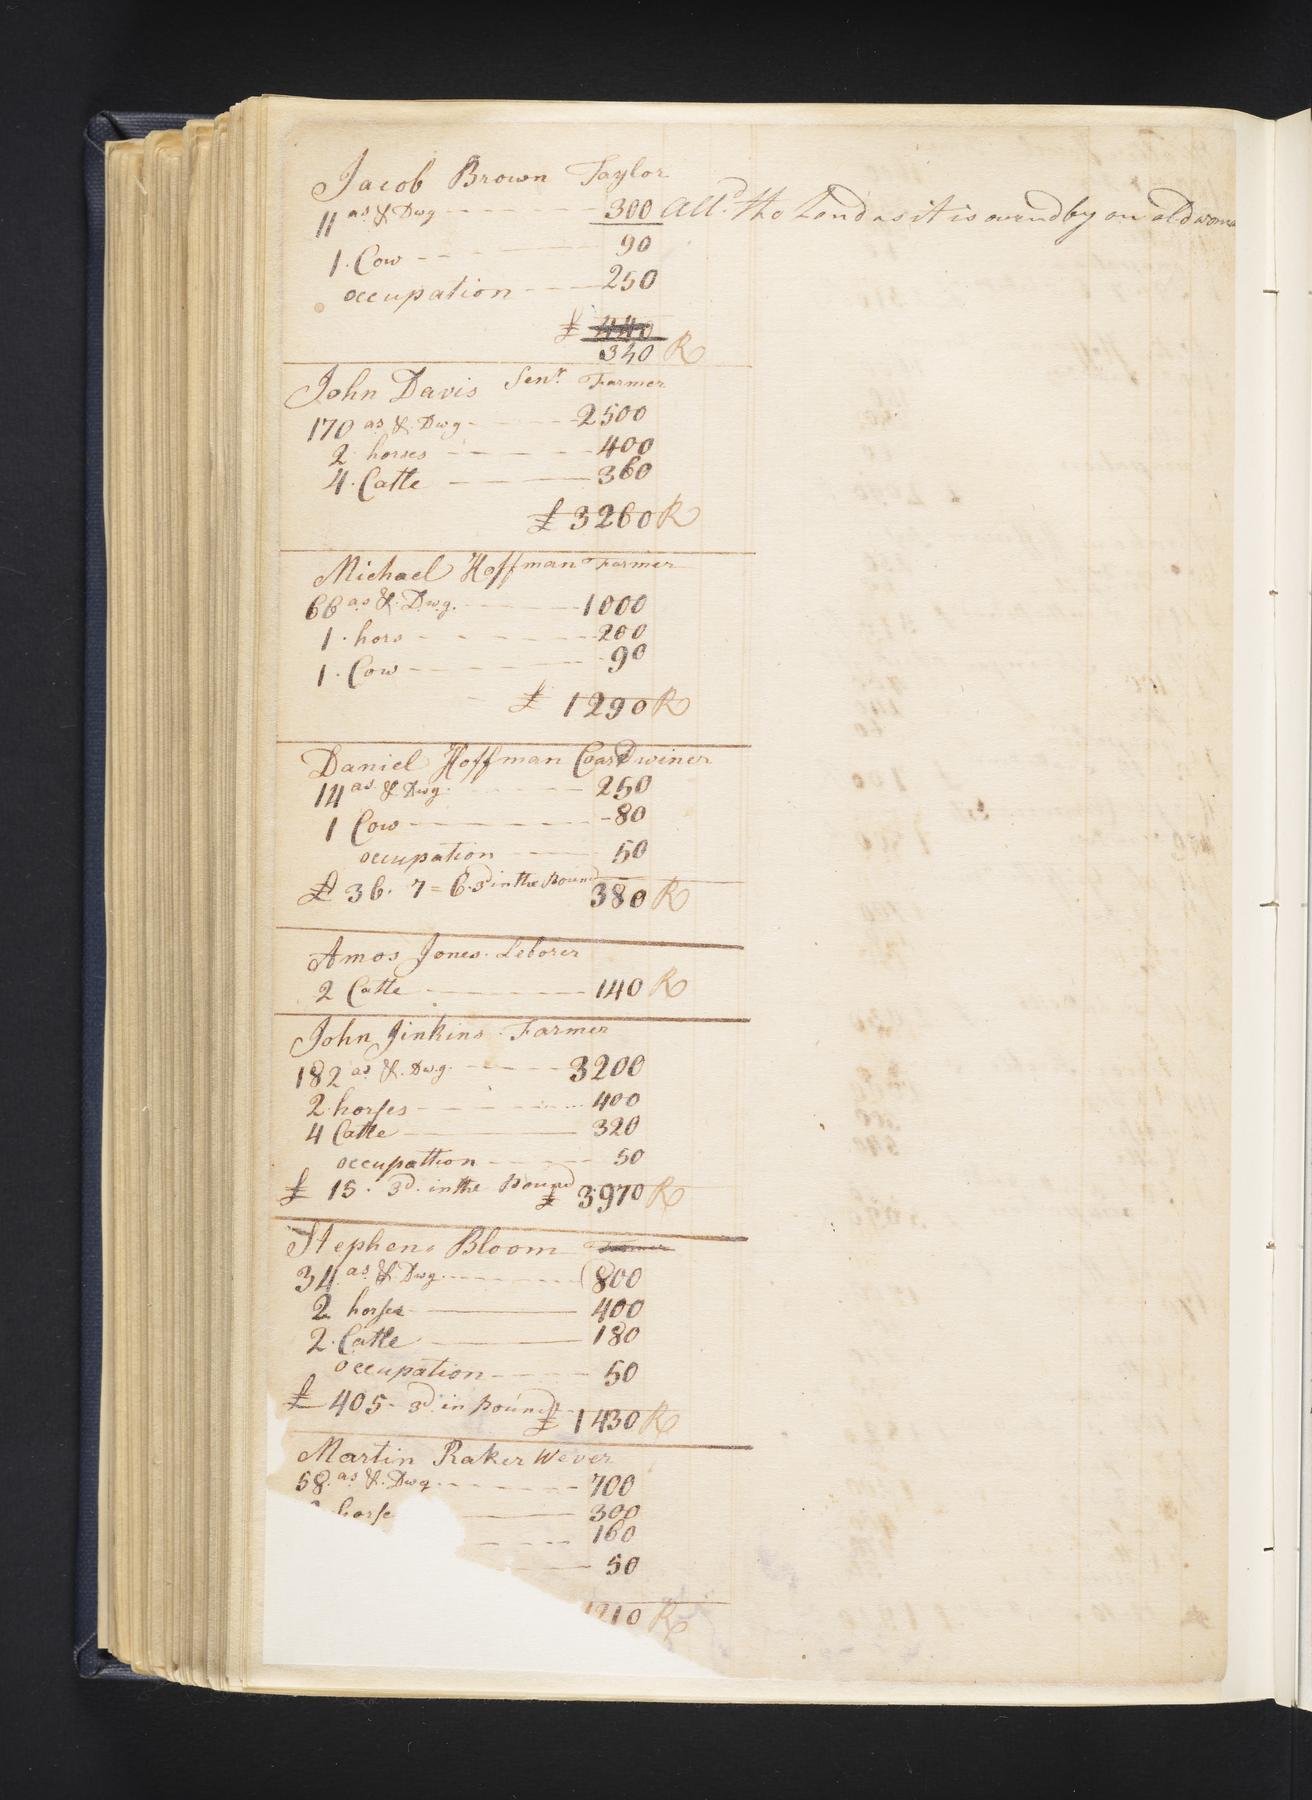 Jacob Brown Taylor
11 as & Dwg 300 All.d the Land as it is ownd by an old
1. Cow 90
occupation 250
£ 440
340 R
John Davis Sen.r Farmer
170 as & Dwg 2500
2 horses 400
4. Catle 360
£ 3260 R
Michael Hoffman Farmer
66 as & Dwg. 1000
1. hors 200
1. Cow 90
£ 1290 R
Daniel Hoffman Coardwiner
14 as & Dwg. 250
1 Cow 80
occupation 50
£ 36. 7=6. 3d in the Pound 380 R
Amos Jones. Leborer
2 Catle 140 R
John Jinkins. Farmer
182 as &. Dwg. 3200
2 horses 400
4 Catle 320
occupattion 50
£ 15. 3d. in the Pound £ 3970 R
Stephens Bloom Farmer
34 as & Dwg. 800
2 horses 400
2. Catle 180
occupation 50
£ 405- 3d in Pound £ 1430 R
Martin Raker Wever
58. as &. Dwg 700
horse 300
160
50
1210 R